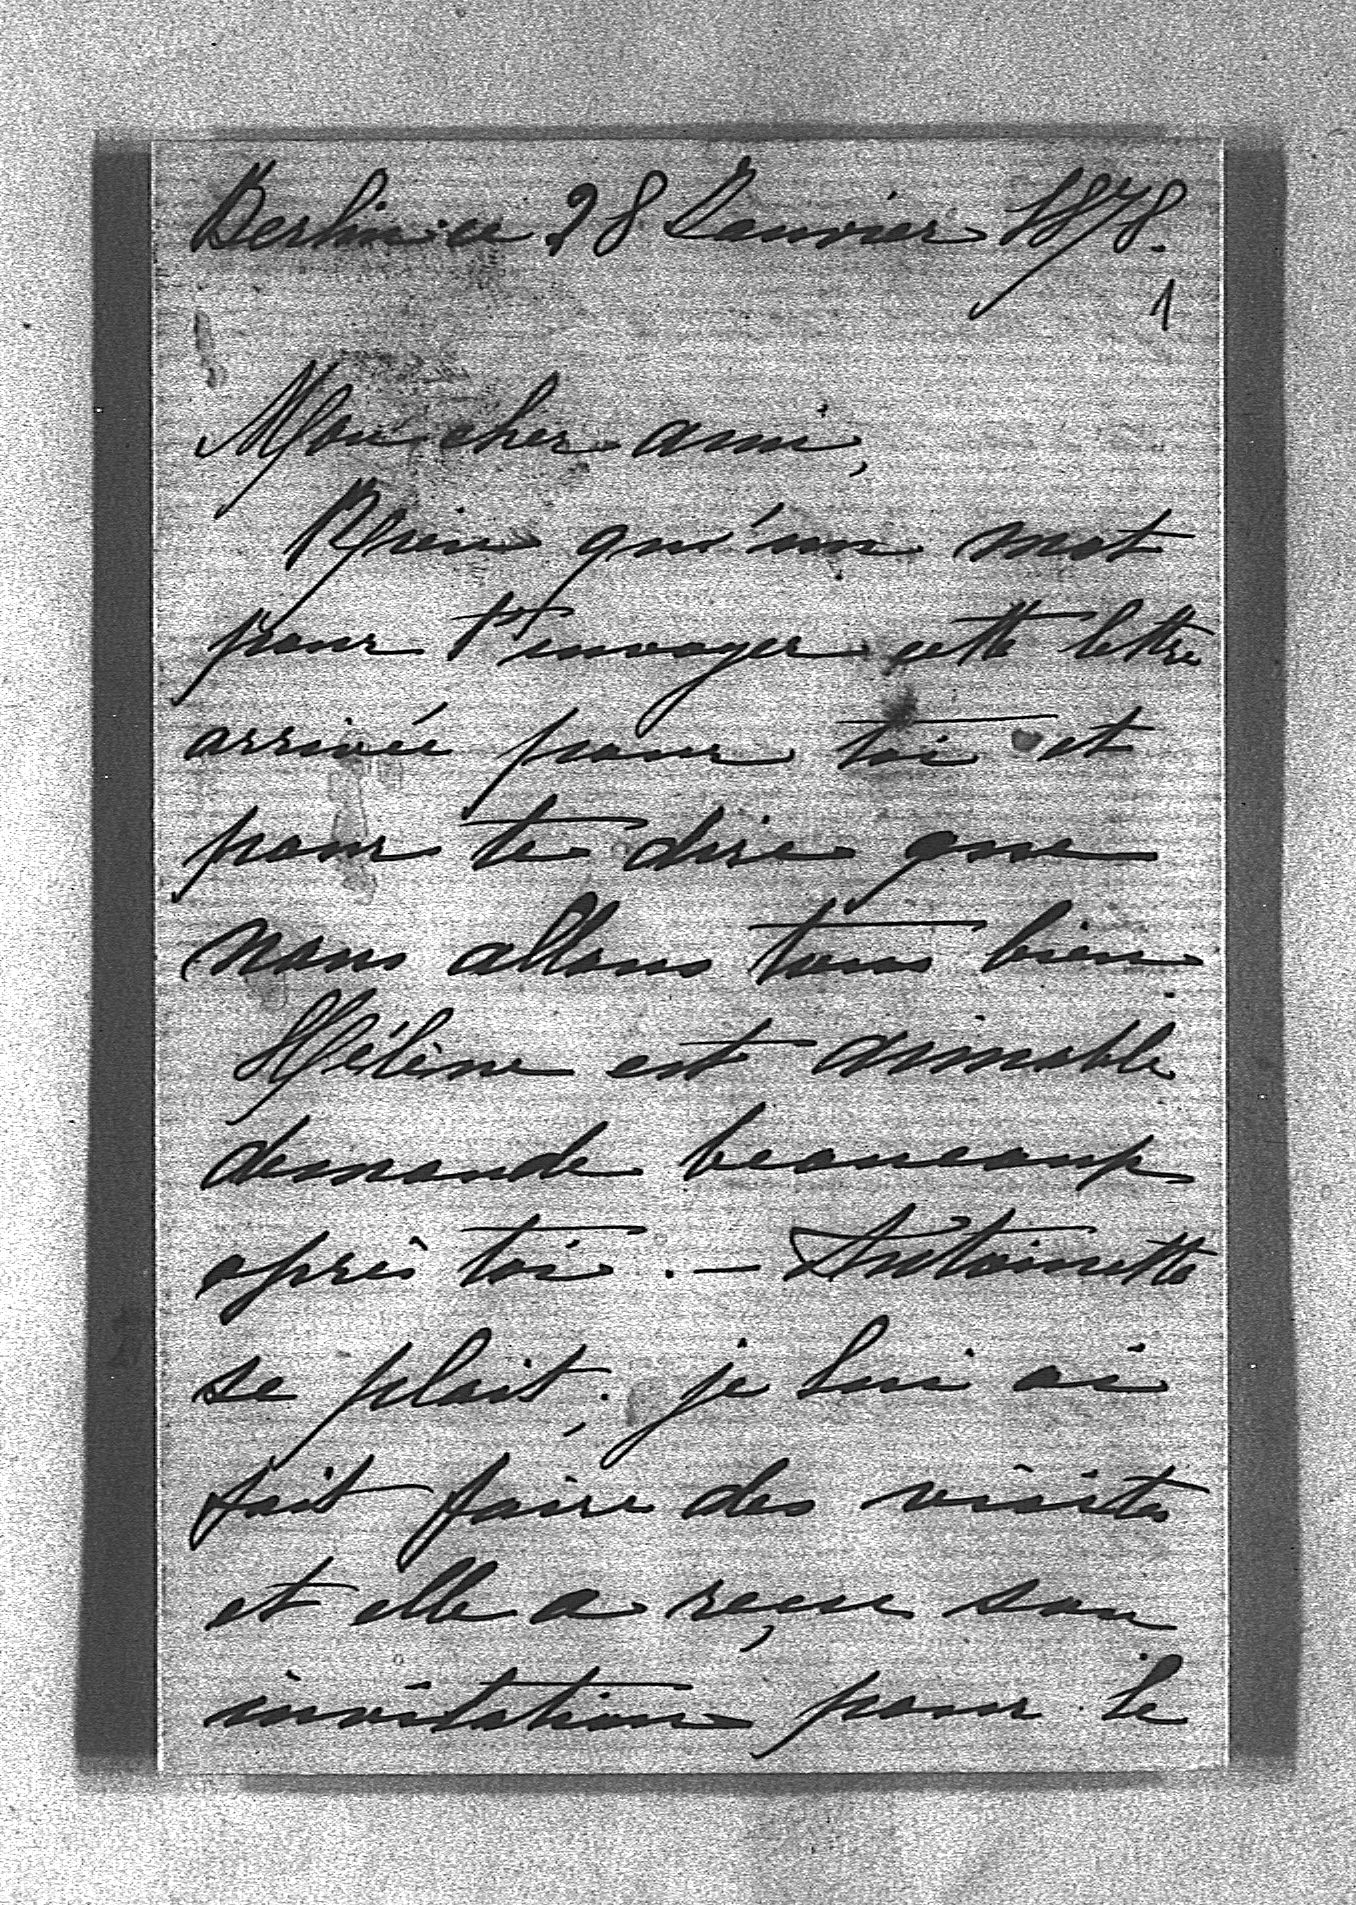 Berlin ce 28 Janvier 1878.
1
Mon cher ami,
Rien qu'un mot
pour t'envoyer cette lettre
arrivée pour toi et
pour te dire que
nous allons tous bien.
Hélène est aimable
demande beaucoup
après toi. — Antoinette
se plait; je lui ai
fait faire des visites
et elle a reçu son
invitation pour le